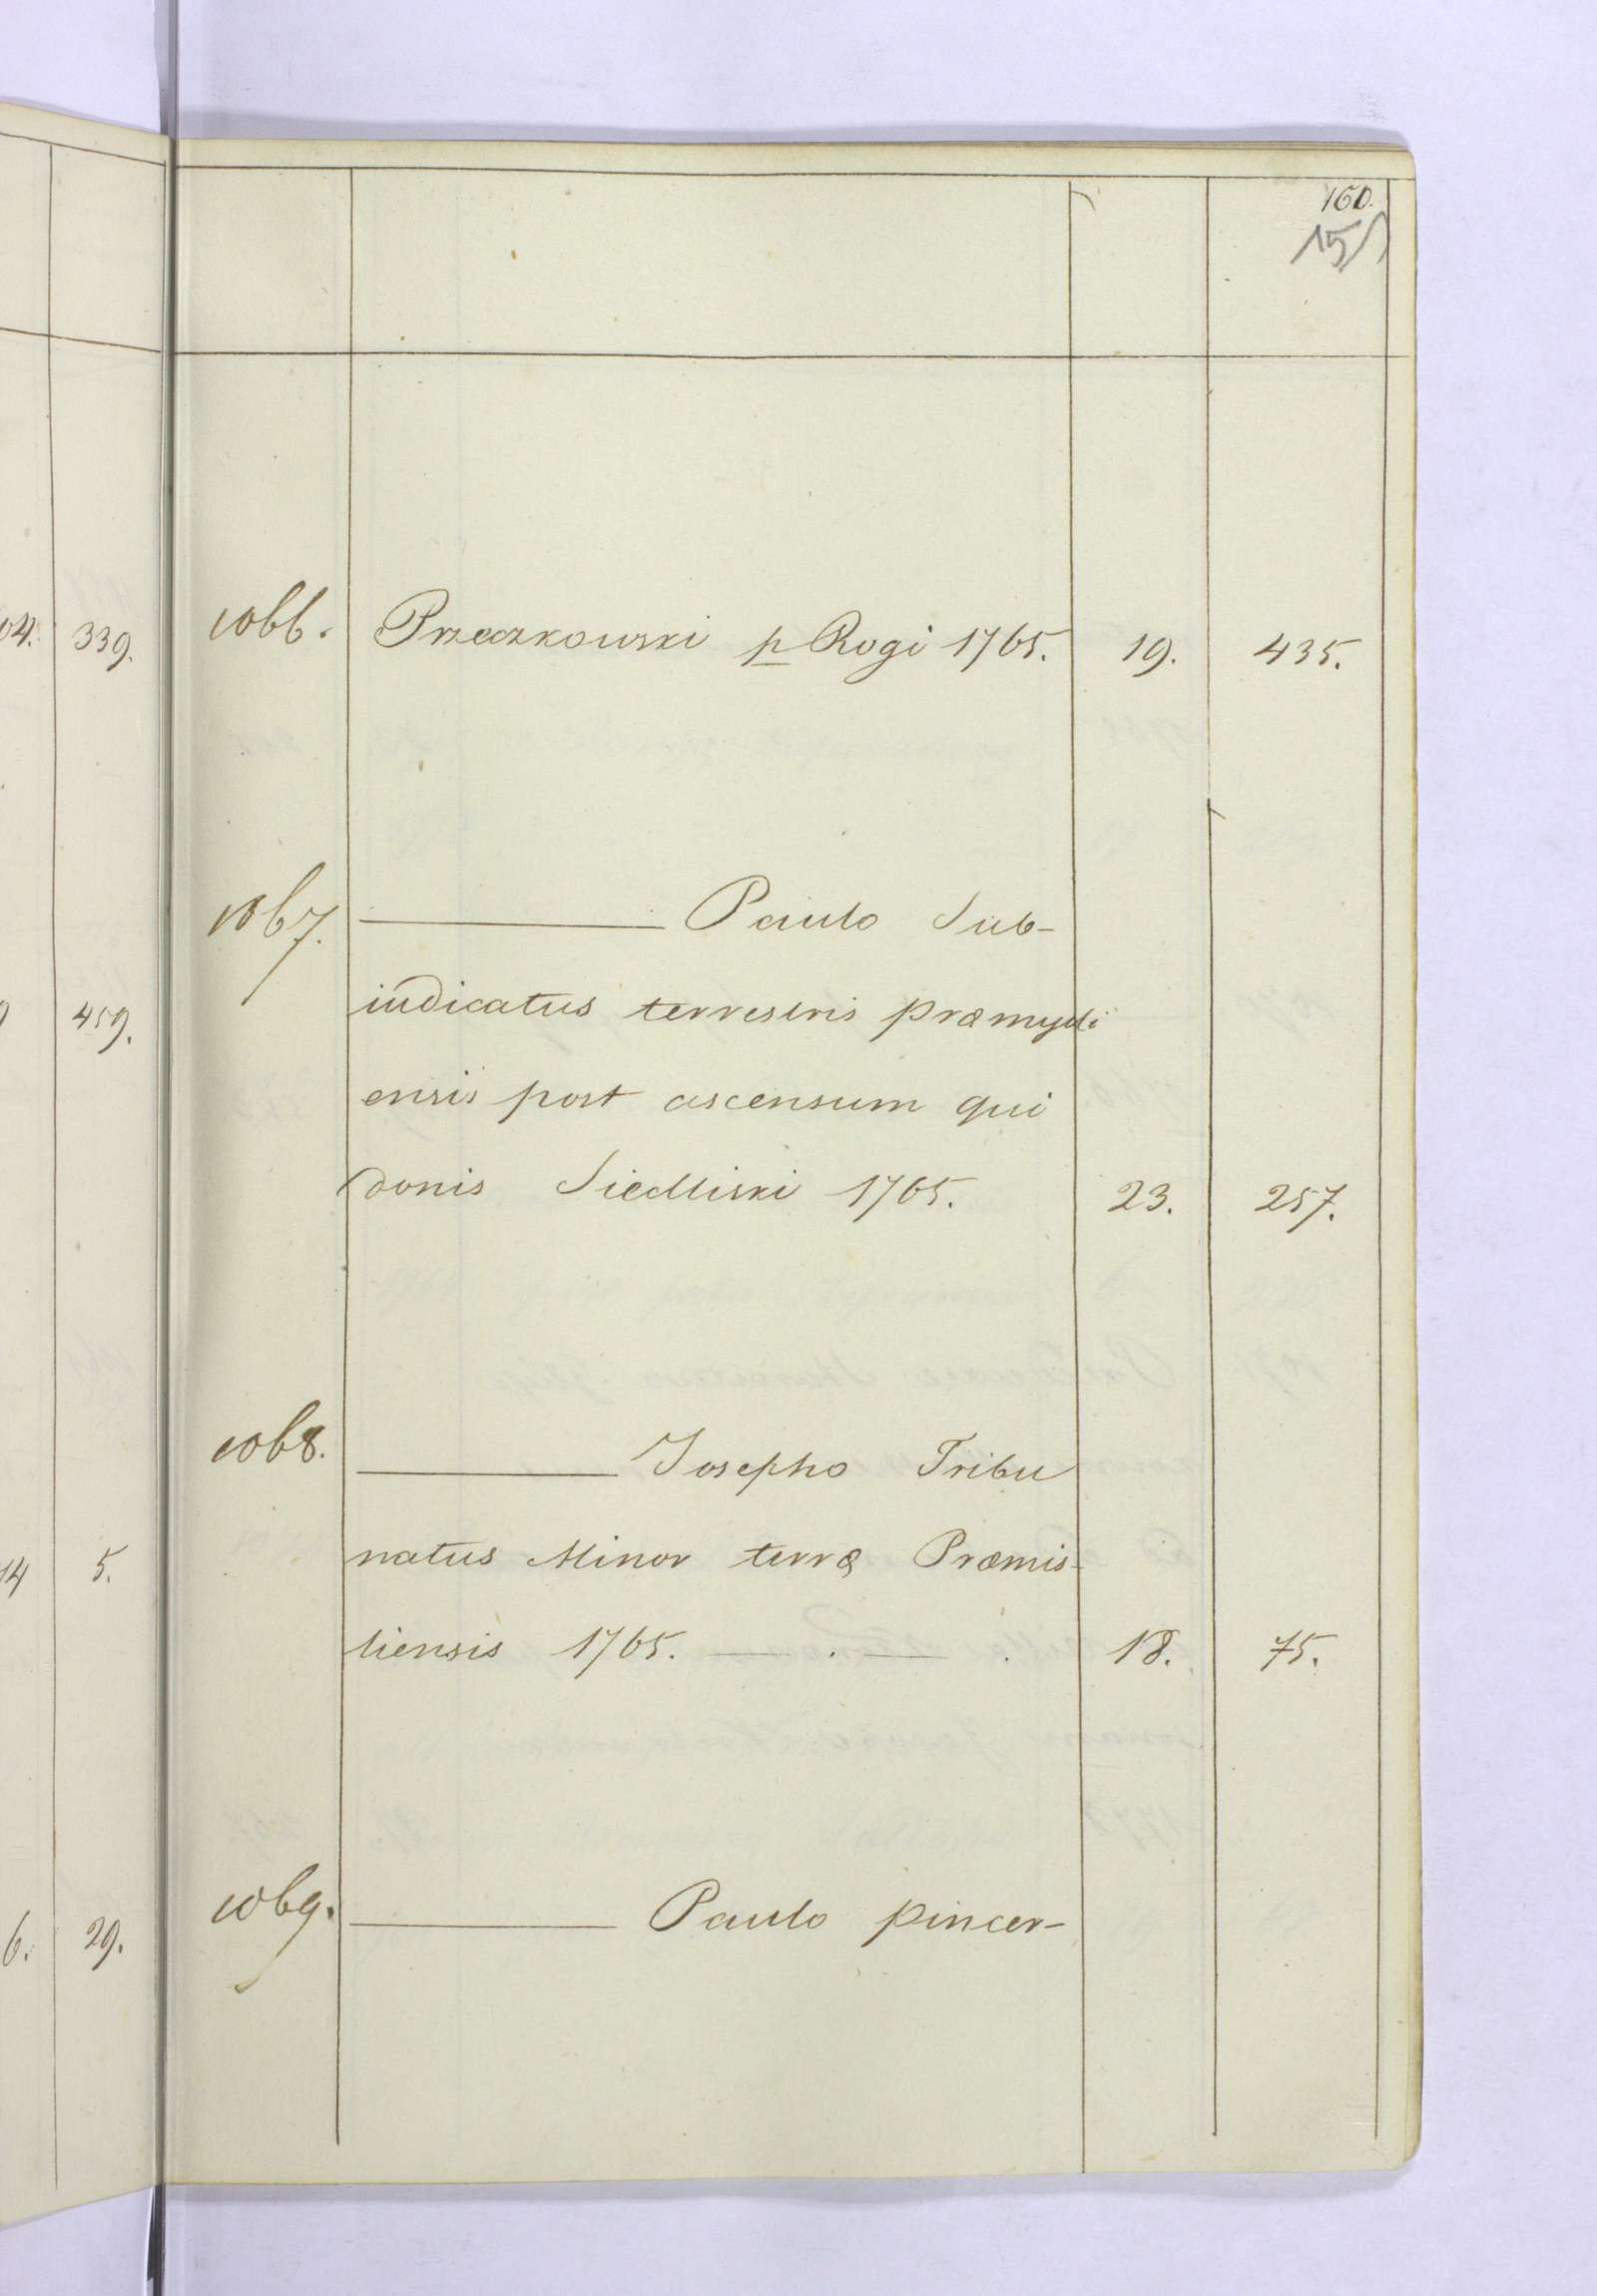 160.
151
04. 339.
1066. Przeczkowski p Rogi 1765. 19. 435.
1067. ——— Paulo Sub-
459. iudicatus terrestris præmysli
ensis post ascensum qui
donis Siedliski 1765. 23. 257.
1068. ——— Josepho Tribu
14 5. natus Minor terræ Præmis-
liensis 1765. — . — . 18. 75.
6. 29. 1069. ——— Paulo pincer-